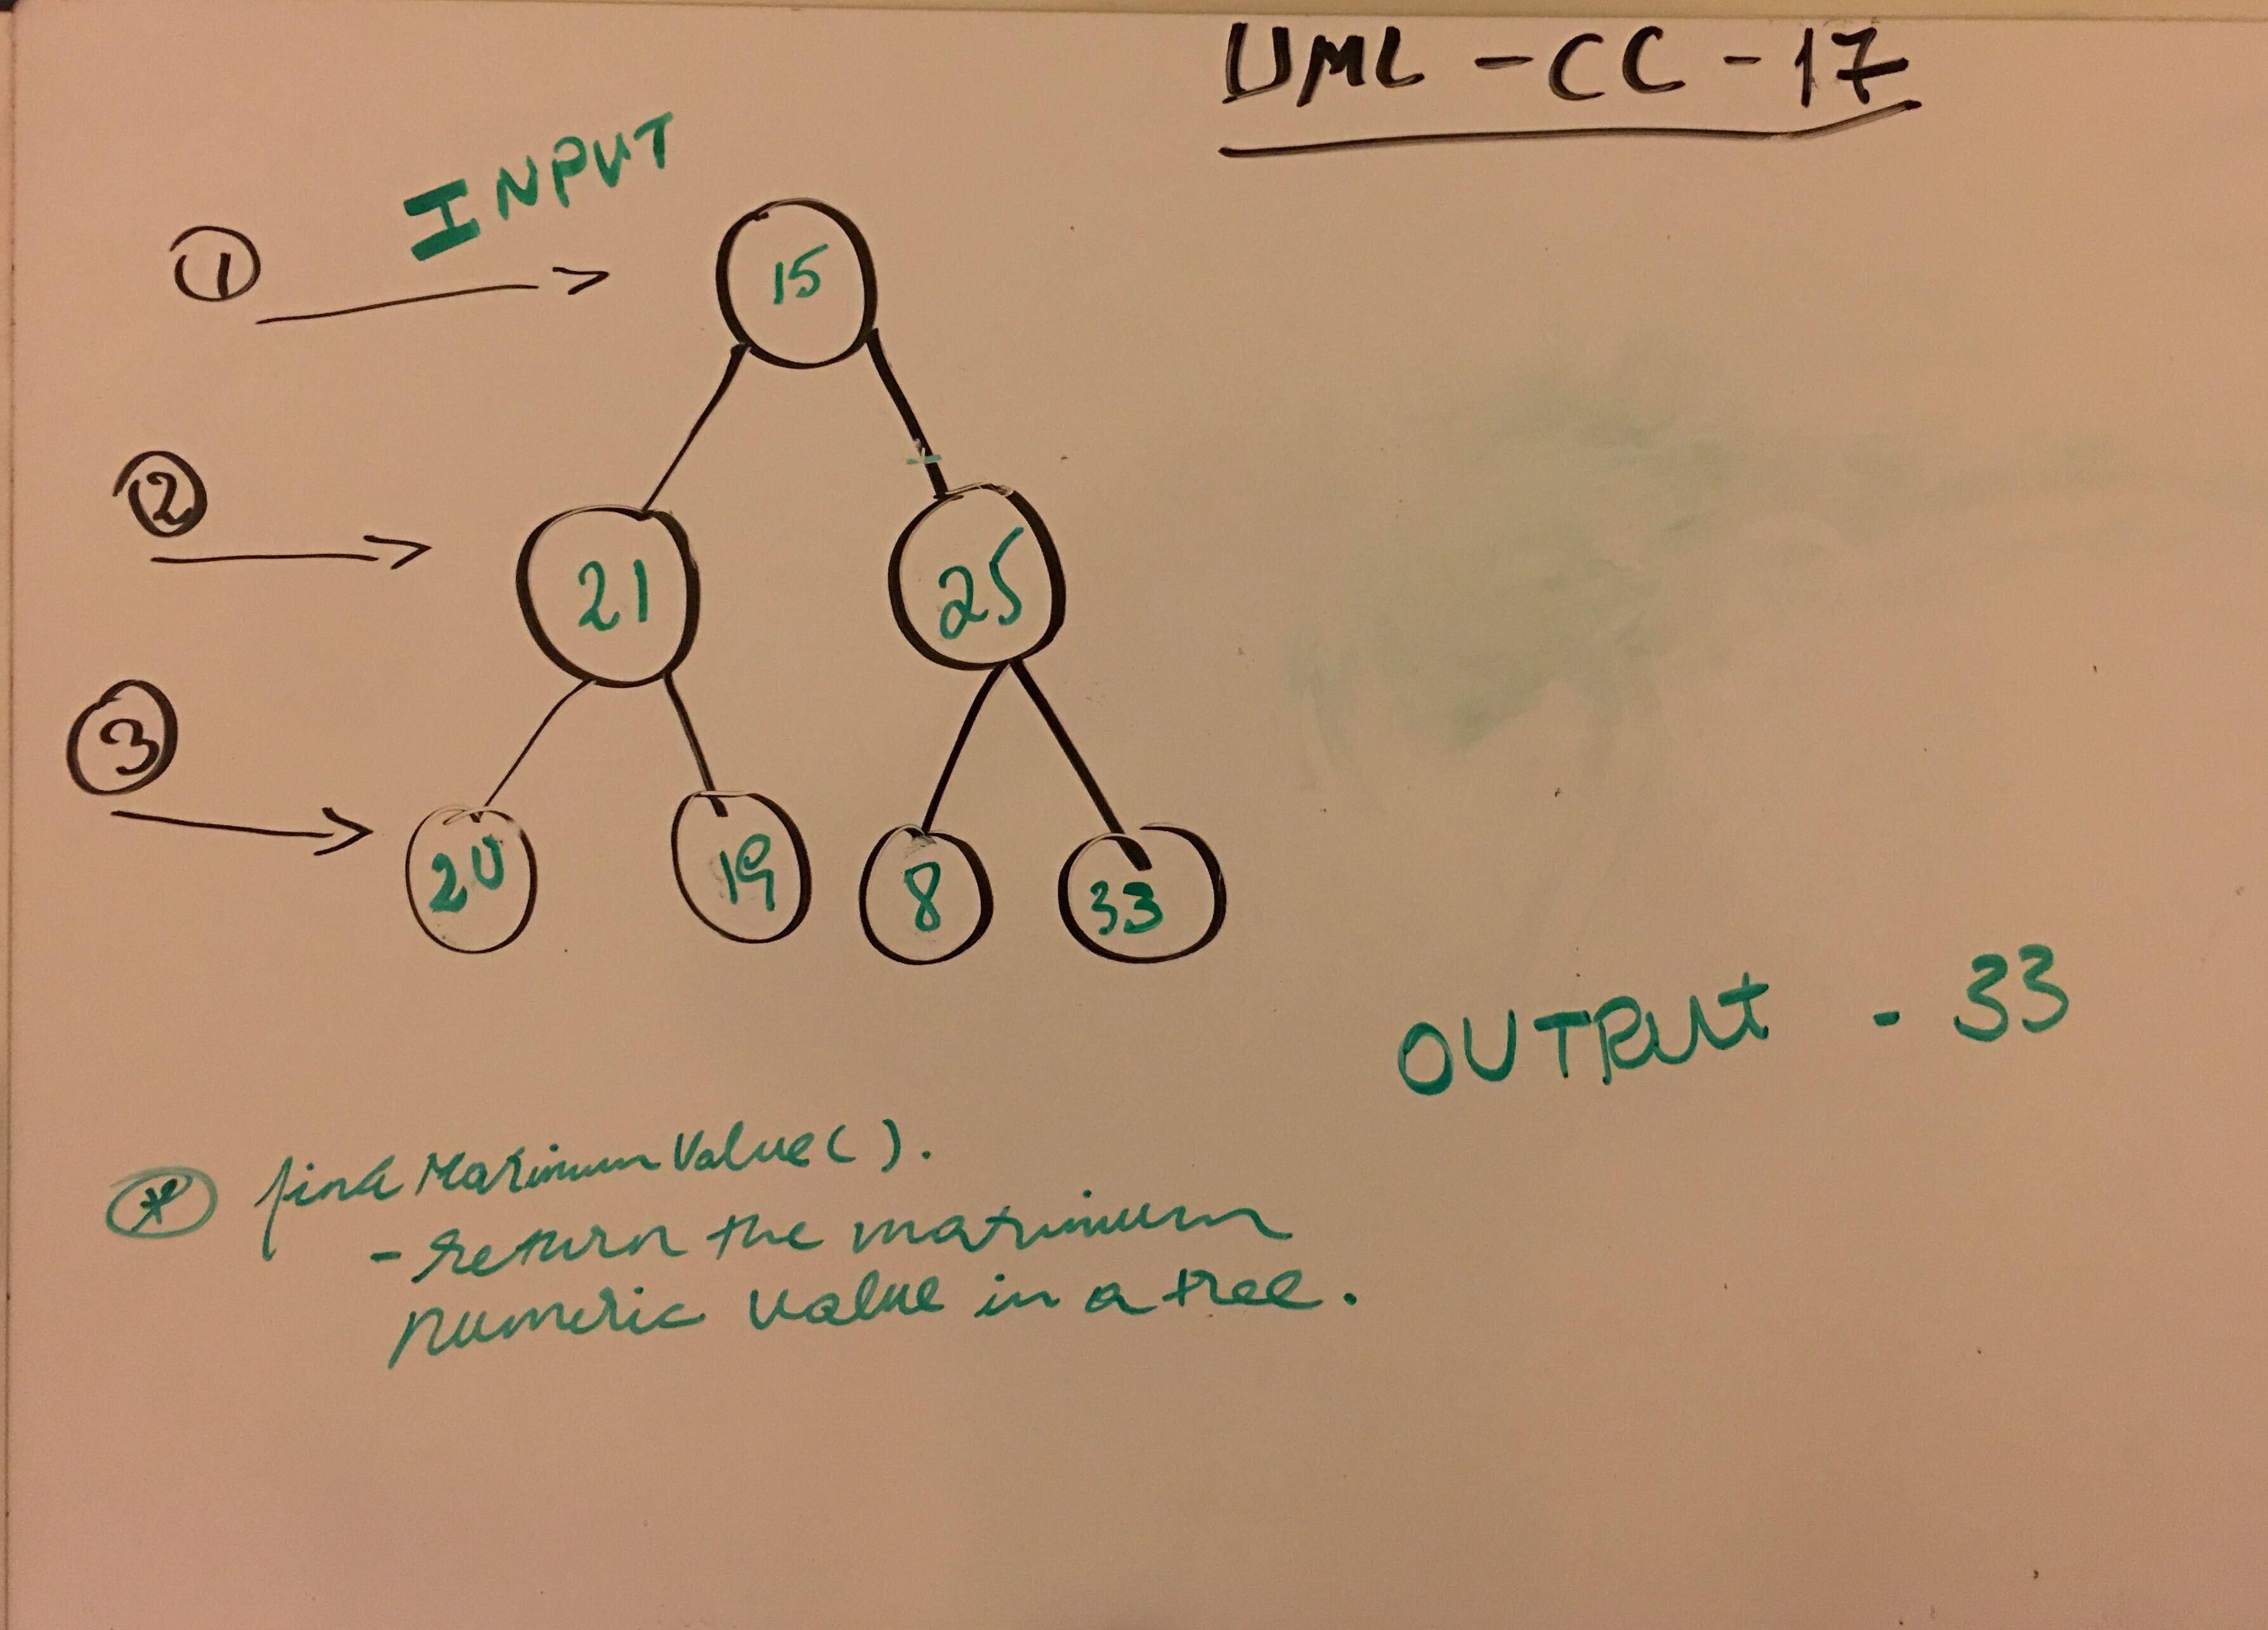 UML - CC - 17
INPUT
1
15
2
21 25
3
20 19 8 33
OUTPUT - 33
* find Maximum Value( ).
- return the maximum
numeric value in a tree.